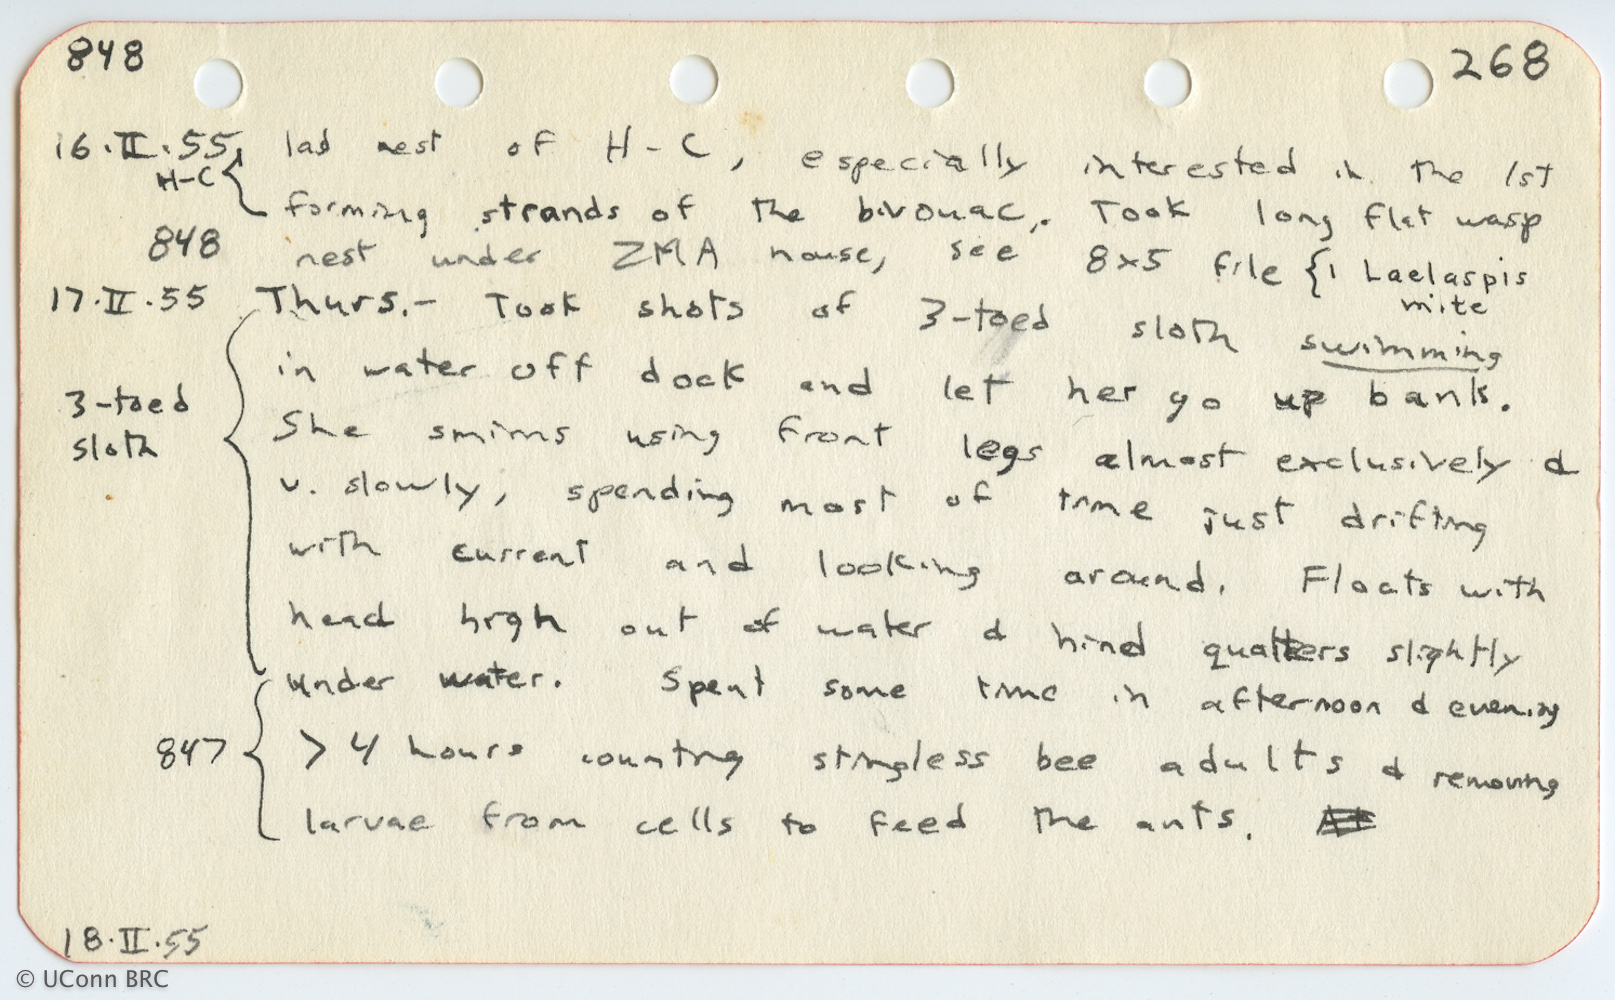 848 268
16.II.55 lab nest of H-C, especially interested in the 1st
H-C forming strands of the bivouac. Took long flat wasp
848 nest under ZMA house, see 8x5 file { 1 Laelaspis
mite
17.II.55 Thurs.- Took shots of 3-toed sloth swimming
in water off dock and let her go up bank.
3-toed
sloth
She swims using front legs almost exclusively &
v. slowly, spending most of time just drifting
with current and looking around. Floats with
head high out of water & hind quatters slightly
under water. Spent some time in afternoon & evening
847 > 4 hours counting stingless bee adults & removing
larvae from cells to feed the ants.
18.II.55
© UConn BRC